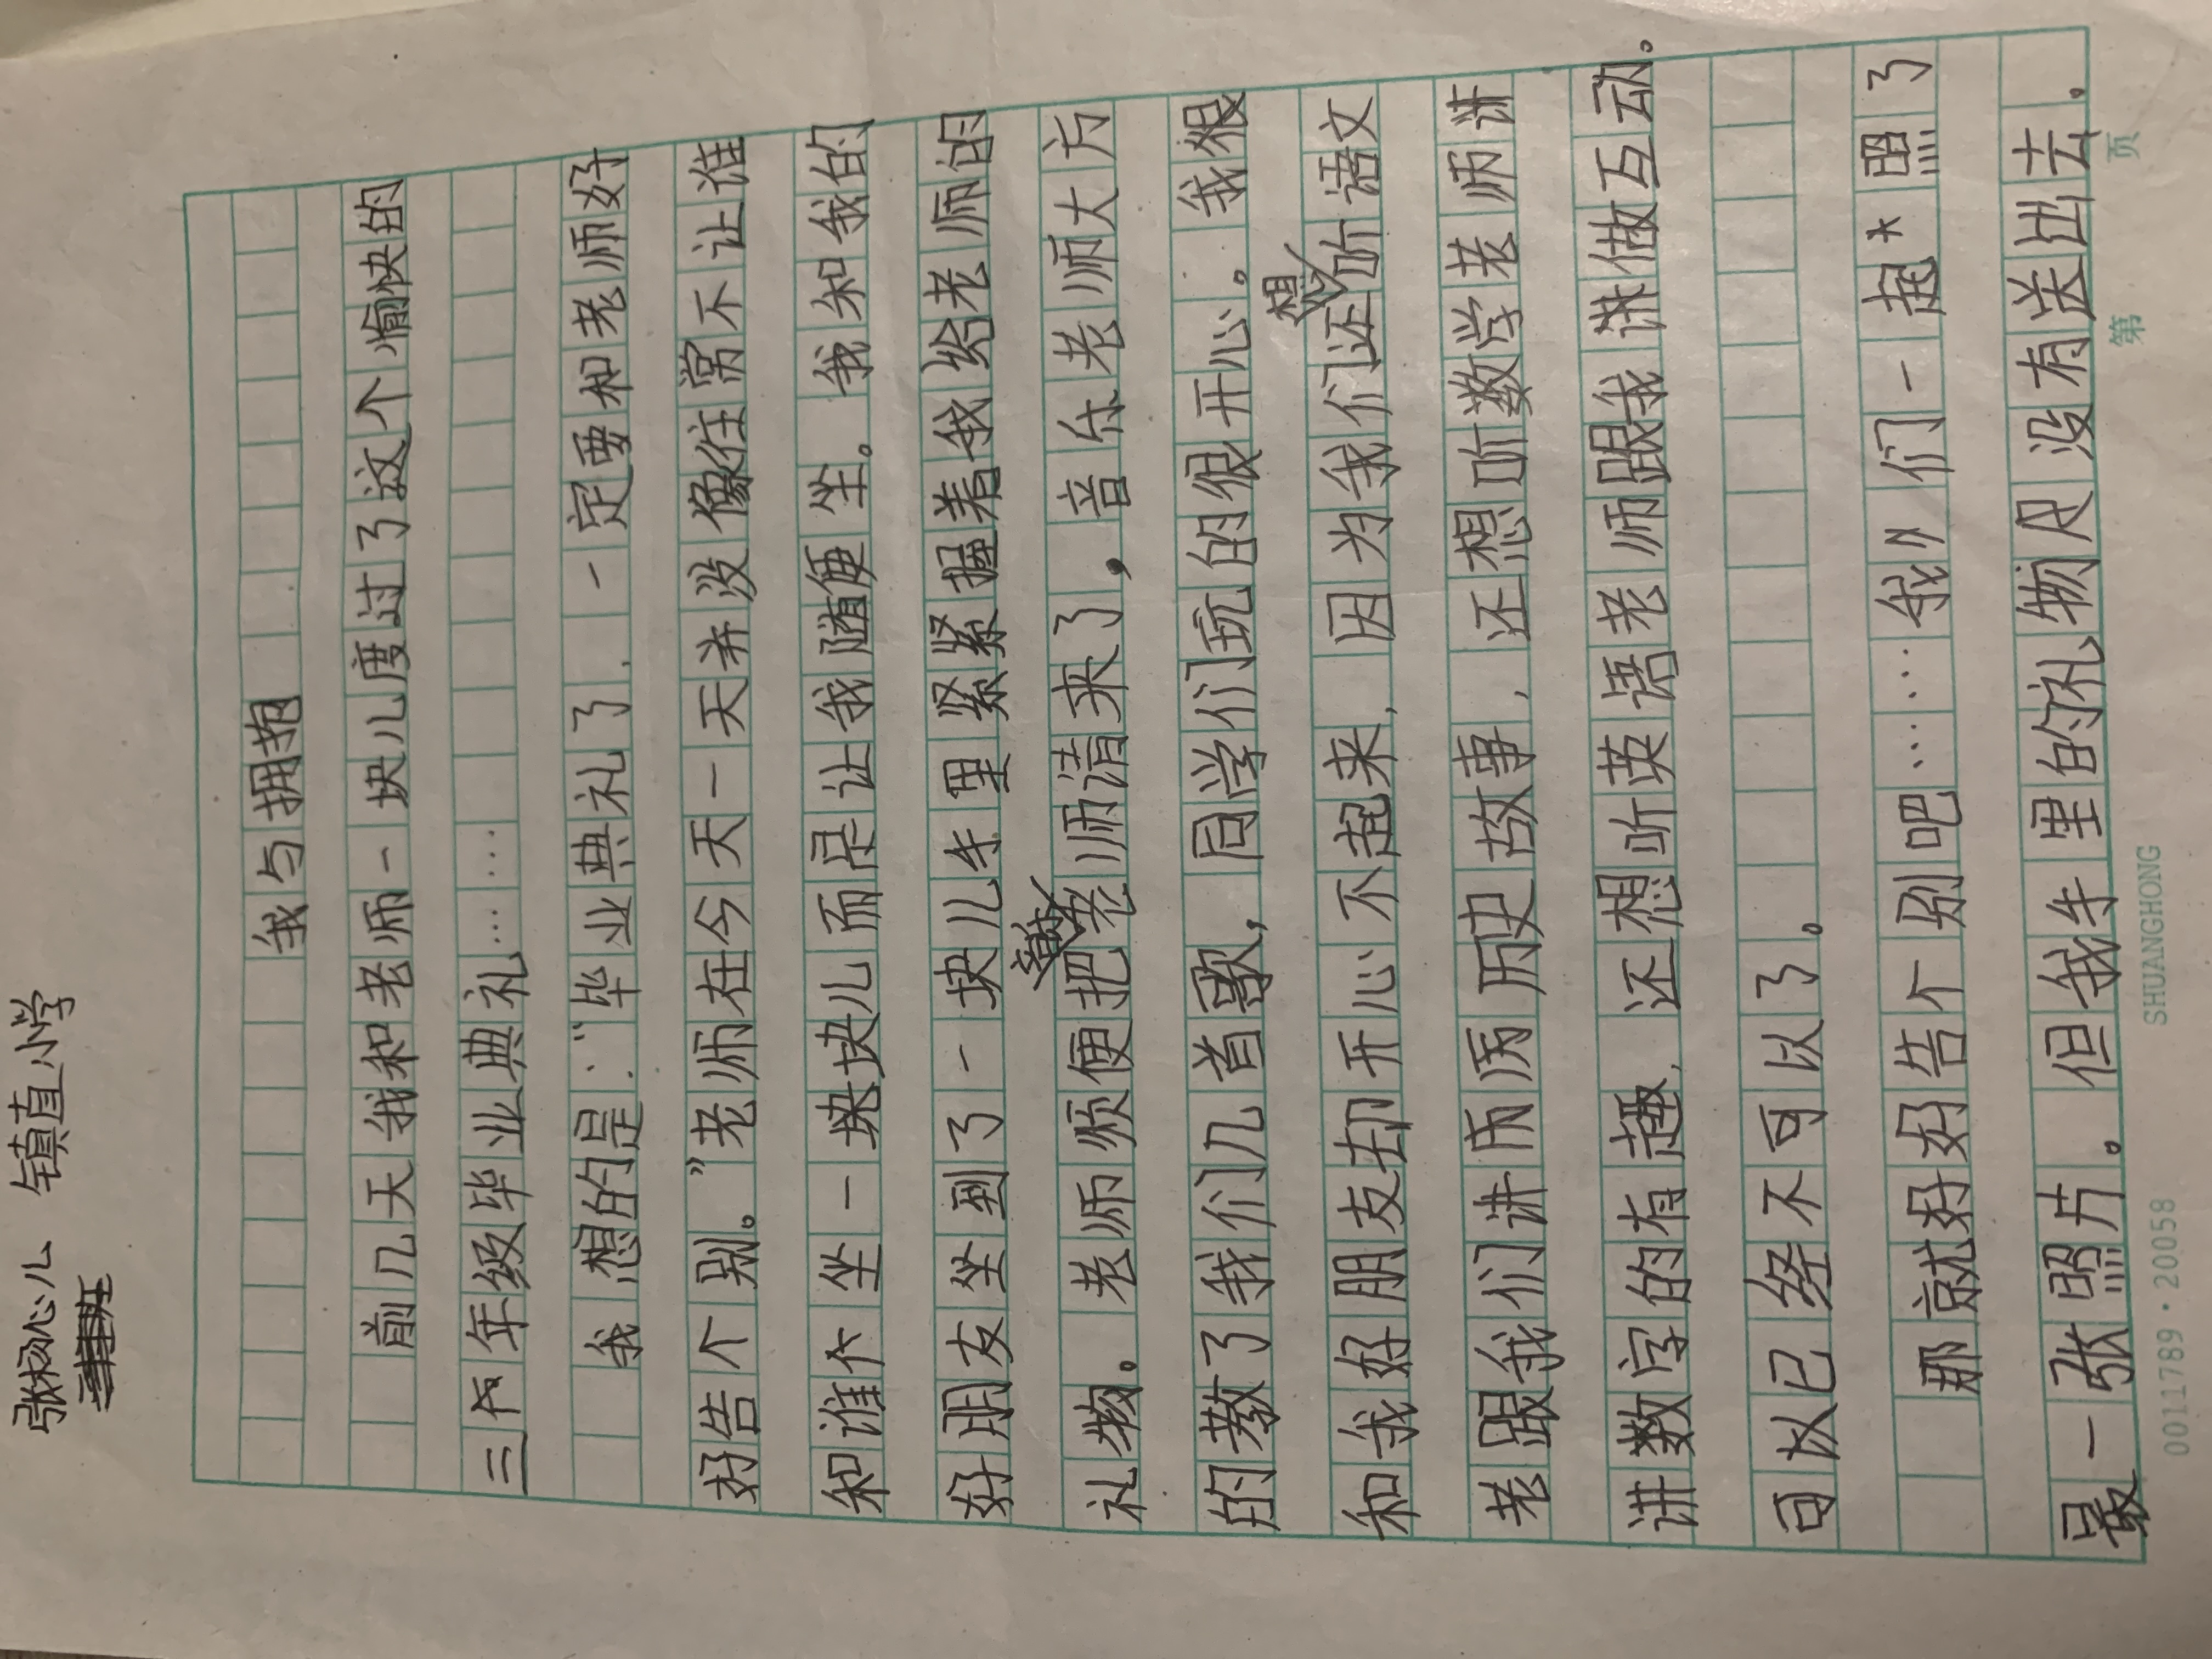 张杺心儿 镇直小学
我与拥抱
前几天我和老师一块儿度过了这个愉快的
三个年级毕业典礼……
我想的是：“毕业典礼了，一定要和老师好
好告个别。”老师在今天一天并没像往常不让谁
和谁个坐一块块儿而是让我随便坐。我和我的
好朋友坐到了一块儿手里紧紧握着我给老师的
礼物。老师烦便把音乐老师请来了，音乐老师大方
的教了我们几首歌，同学们玩的很开心。我很
和我好朋友却开心不起来，因为我们还想听语文
老跟我们讲历历历史故事，还想听数学老师讲
讲数字的有趣，还想听英语老师跟我讲做互动。
可以已经不可以了。
那就好好告个别吧……我〃们一起*照了
最一张照片。但我手里的礼物只没有送出去.
0011789·20058 SHUANGHONG 第 页